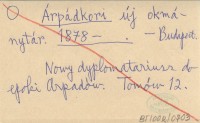 Árpádkori új okmá-
nytár. 1878 — . — Budapest.
Nowy dyplomatariusz d
epoki Arpadów. Tomów 12.